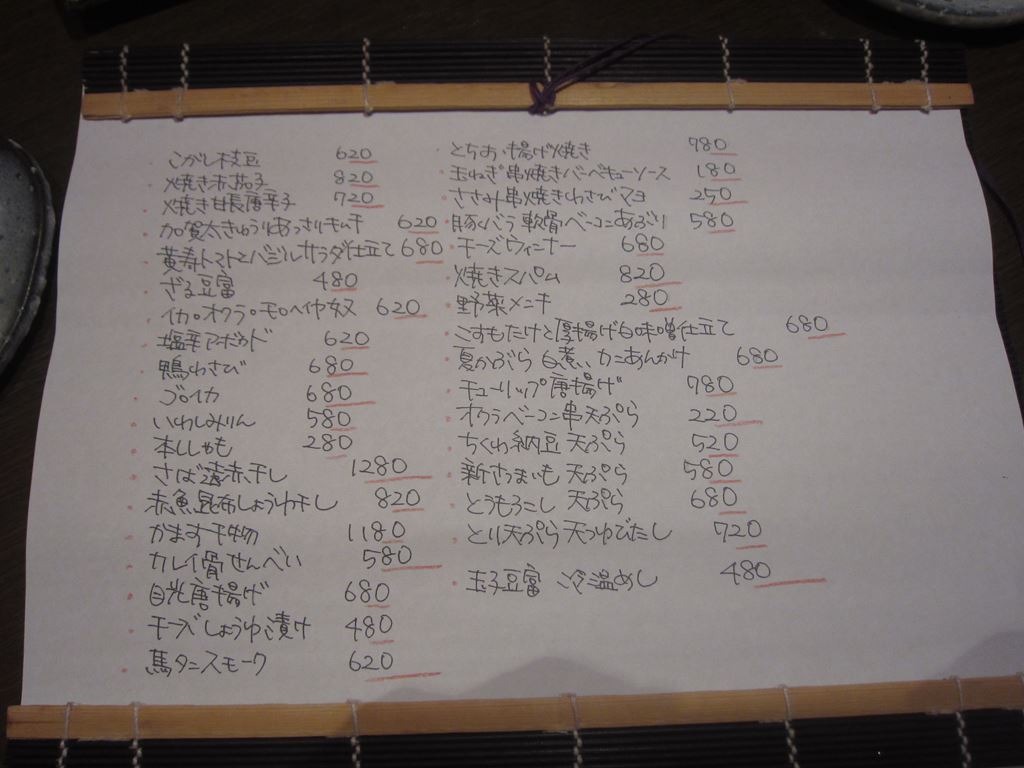 こがし枝豆 620
焼き赤茄子 820
焼き甘長唐辛子 720
加賀太きゅうりあっさりキムチ 620
黄寿トマトとバジルサラダ仕立て 680
ざる豆富 480
イカ・オクラ・モロヘイヤ奴 620
塩辛アボカド 620
鴨わさび 680
ゴロイカ 680
いわしみりん 580
本ししゃも 280
さば遠赤干し 1280
赤魚昆布しょうゆ干し 820
かます干物 1180
カレイ骨せんべい 580
目光唐揚げ 680
チーズしょうゆ漬け 480
馬タンスモーク 620
とちお揚げ焼き 780
玉ねぎ串焼きバーベキューソース 180
ささみ串焼きわさびマヨ 250
豚バラ軟骨ベーコンあぶり 580
チーズウィンナー 680
焼きスパム 820
野菜メンチ 280
こすもたけと厚揚げ白味噌仕立て 680
夏かぶら白煮、カニあんかけ 680
チューリップ唐揚げ 780
オクラベーコン串天ぷら 220
ちくわ納豆天ぷら 520
新さつまいも天ぷら 580
とうもろこし天ぷら 680
とり天ぷら天つゆびたし 720
玉子豆富 冷温めし 480